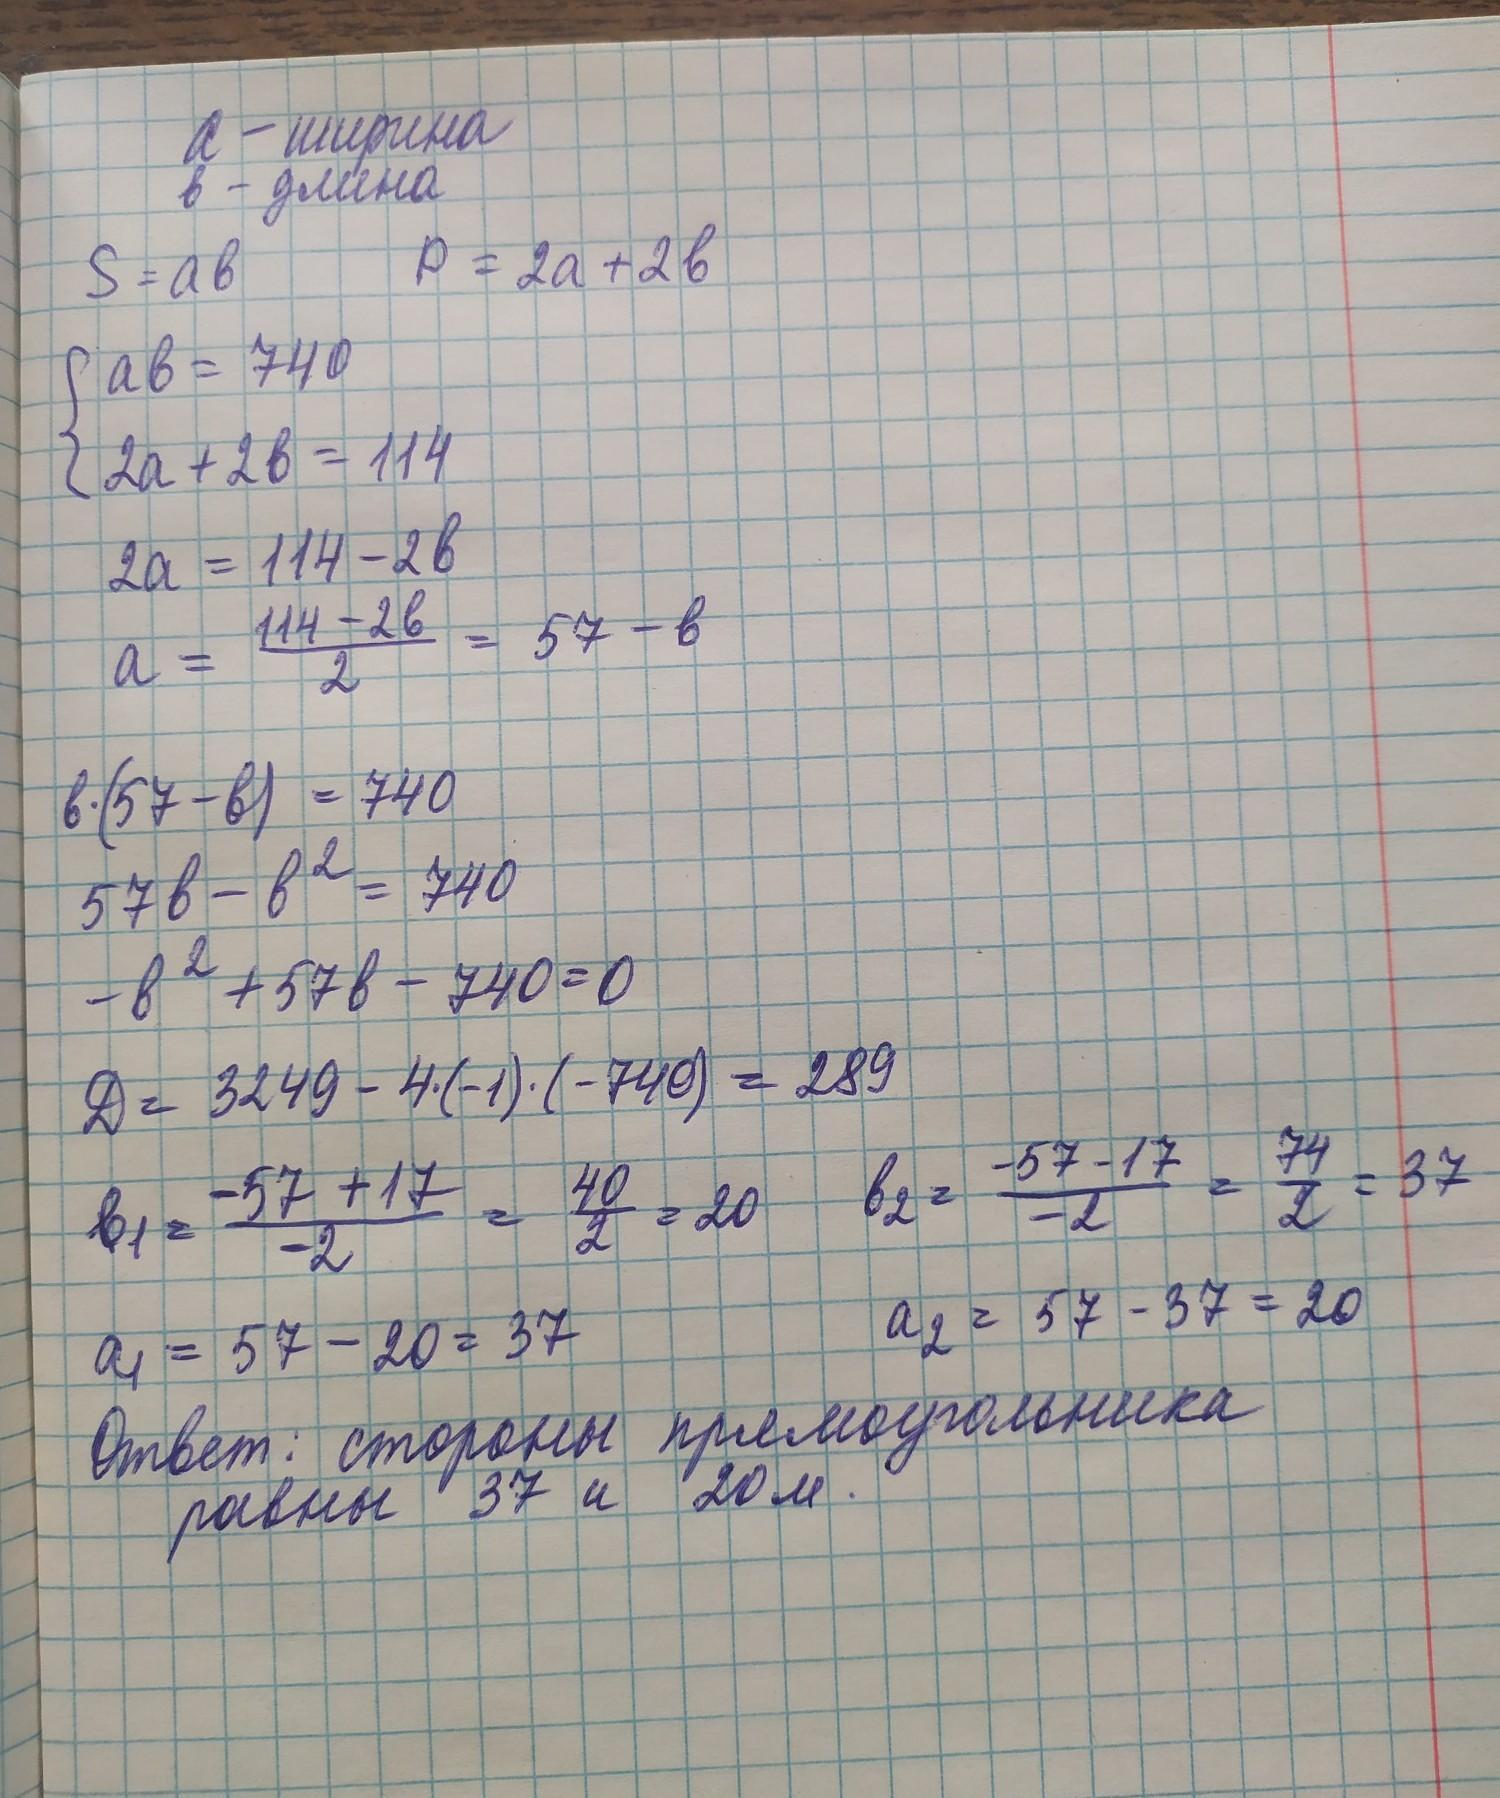 a – ширина
в – длина
S = aв P = 2a + 2в
{ aв = 740
2a + 2в = 114
2a = 114 – 2в
a = (114 – 2в)/2 = 57 – в
в·(57 – в) = 740
57в – в² = 740
–в² + 57в – 740 = 0
D = 3249 – 4·(–1)·(–740) = 289
в₁ = (–57 + 17)/(–2) = 40/2 = 20 в₂ = (–57 – 17)/(–2) = 74/2 = 37
a₁ = 57 – 20 = 37 a₂ = 57 – 37 = 20
Ответ: стороны прямоугольника
равны 37 и 20м.